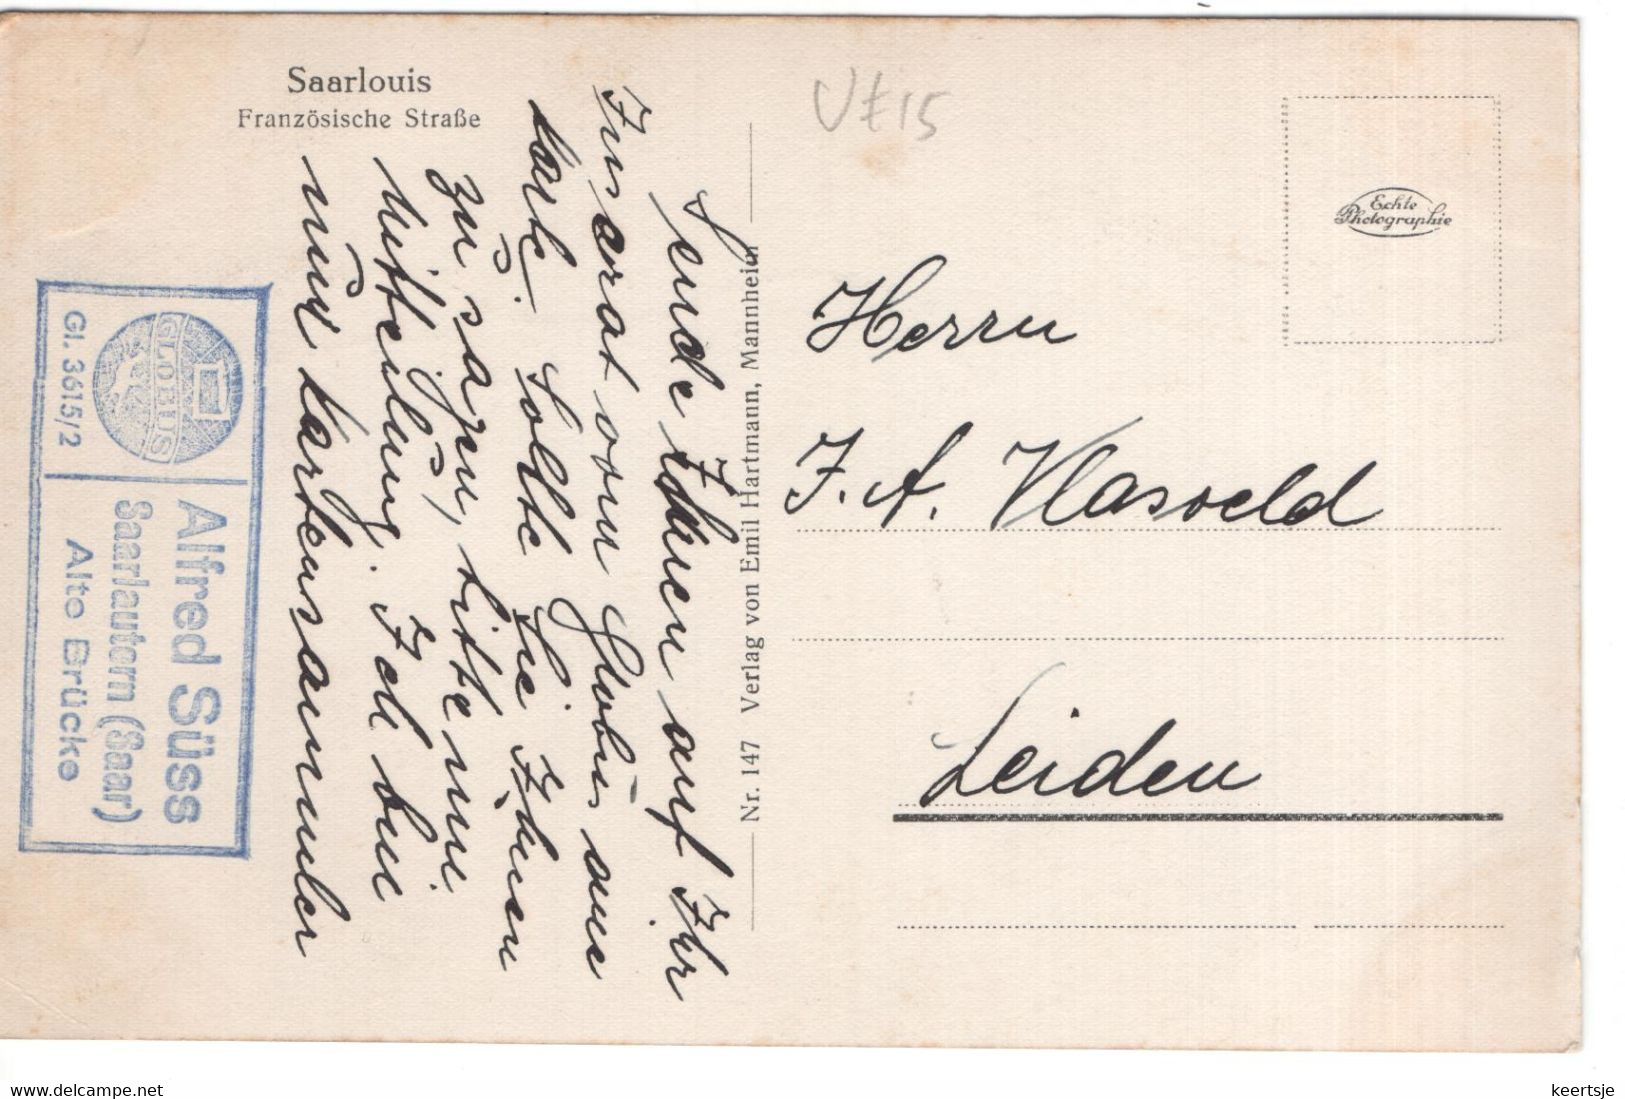 Saarlouis
Französische Straße
VE15
Echte
Photographie
Sende Ihnen auf Ihr
Inserat vom Globus eine
Karte. Sollte Sie Ihnen
zu sagen, bitte um
Mitteilung. Ich bin
nur Kartensammler
Herrn
J. A. Vlasveld
Leiden
Nr. 147 Verlag von Emil Hartmann, Mannheim
GLOBUS
Gl. 3615/2
Alfred Süss
Saarlautern (Saar)
Alte Brücke
www.delcampe.net
keertsje